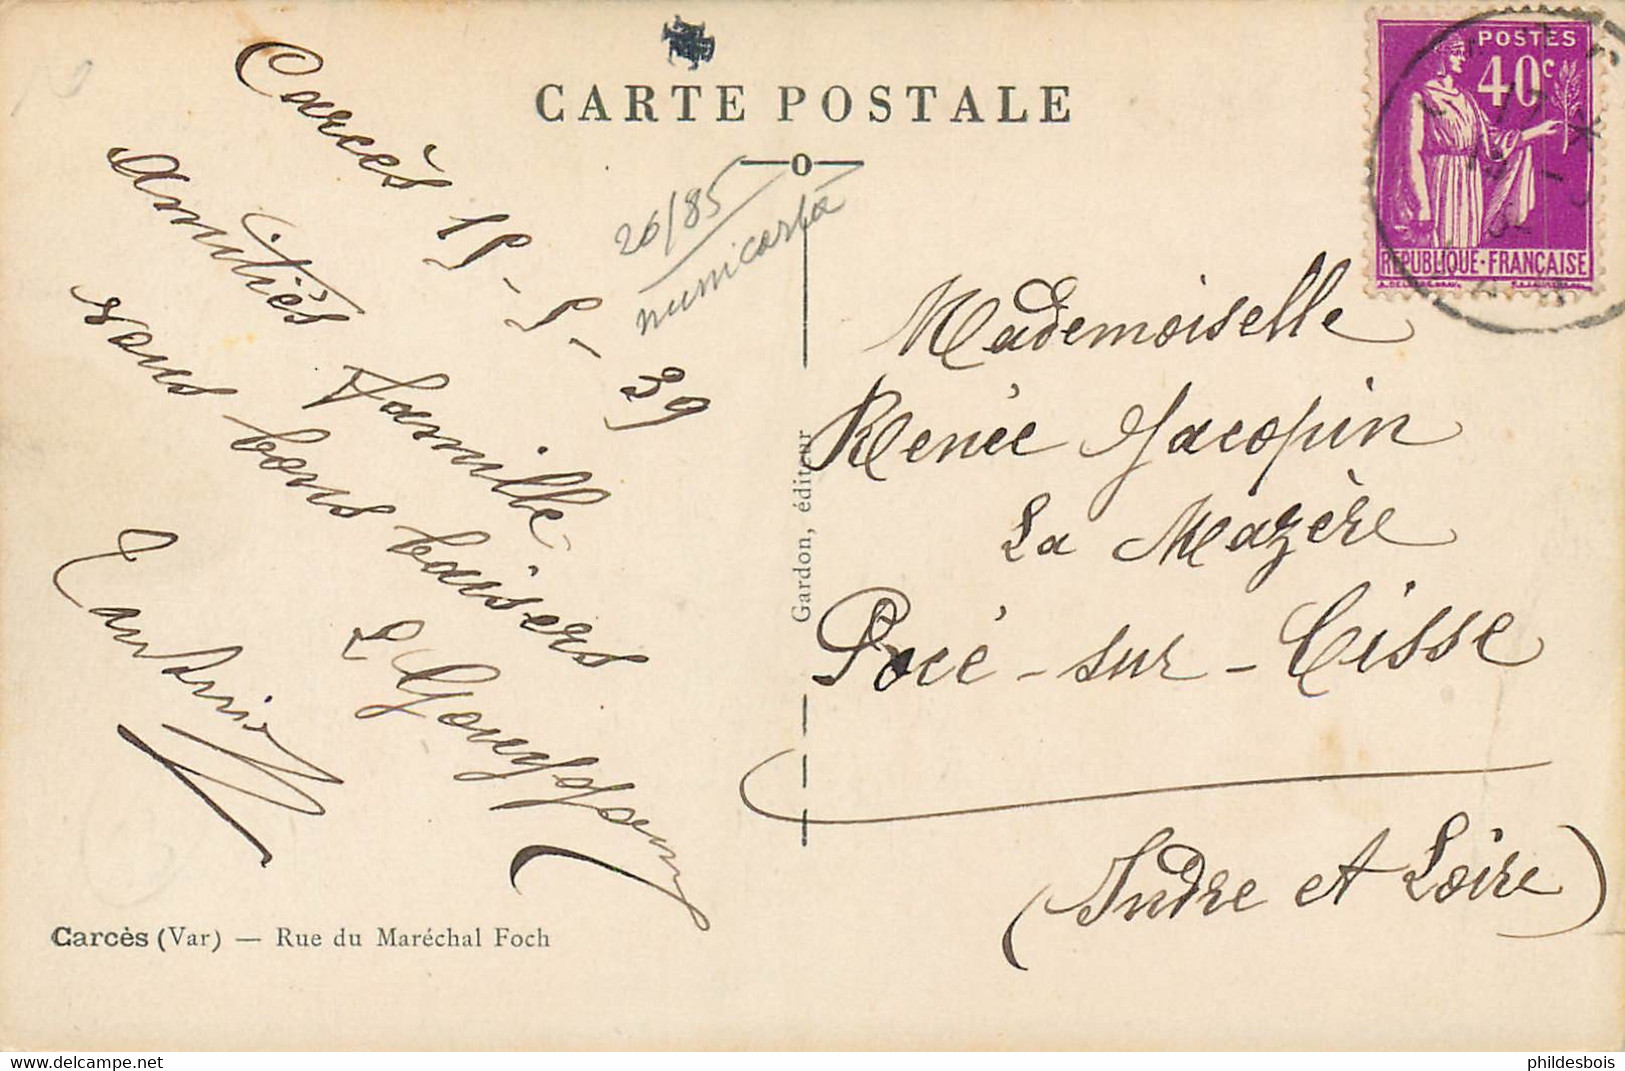 CARTE POSTALE
Carcès 15-5-39
Amitiés famille
vous bons baisers
26/85
numicarta
POSTES
40c
REPUBLIQUE·FRANÇAISE
Mademoiselle
Renée Jacopin
La Mazère
Pocé-sur-Cisse
(Indre et Loire)
Gardon, éditeur
Carcès (Var) — Rue du Maréchal Foch
www.delcampe.net
phildesbois